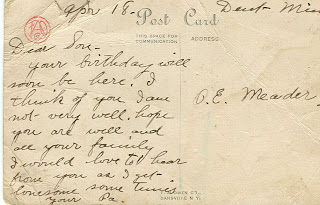 Apr 18-
Post Card
THIS SPACE FOR
COMMUNICATION
ADDRESS
Dear Son-
your birthday will
soon be here. I
think of you I am
not very well. hope
you are well and
all your family
I would love to hear
from you as I get
lonesome some times
your Pa.
O. E. Meader
DANSVILLE N.Y.